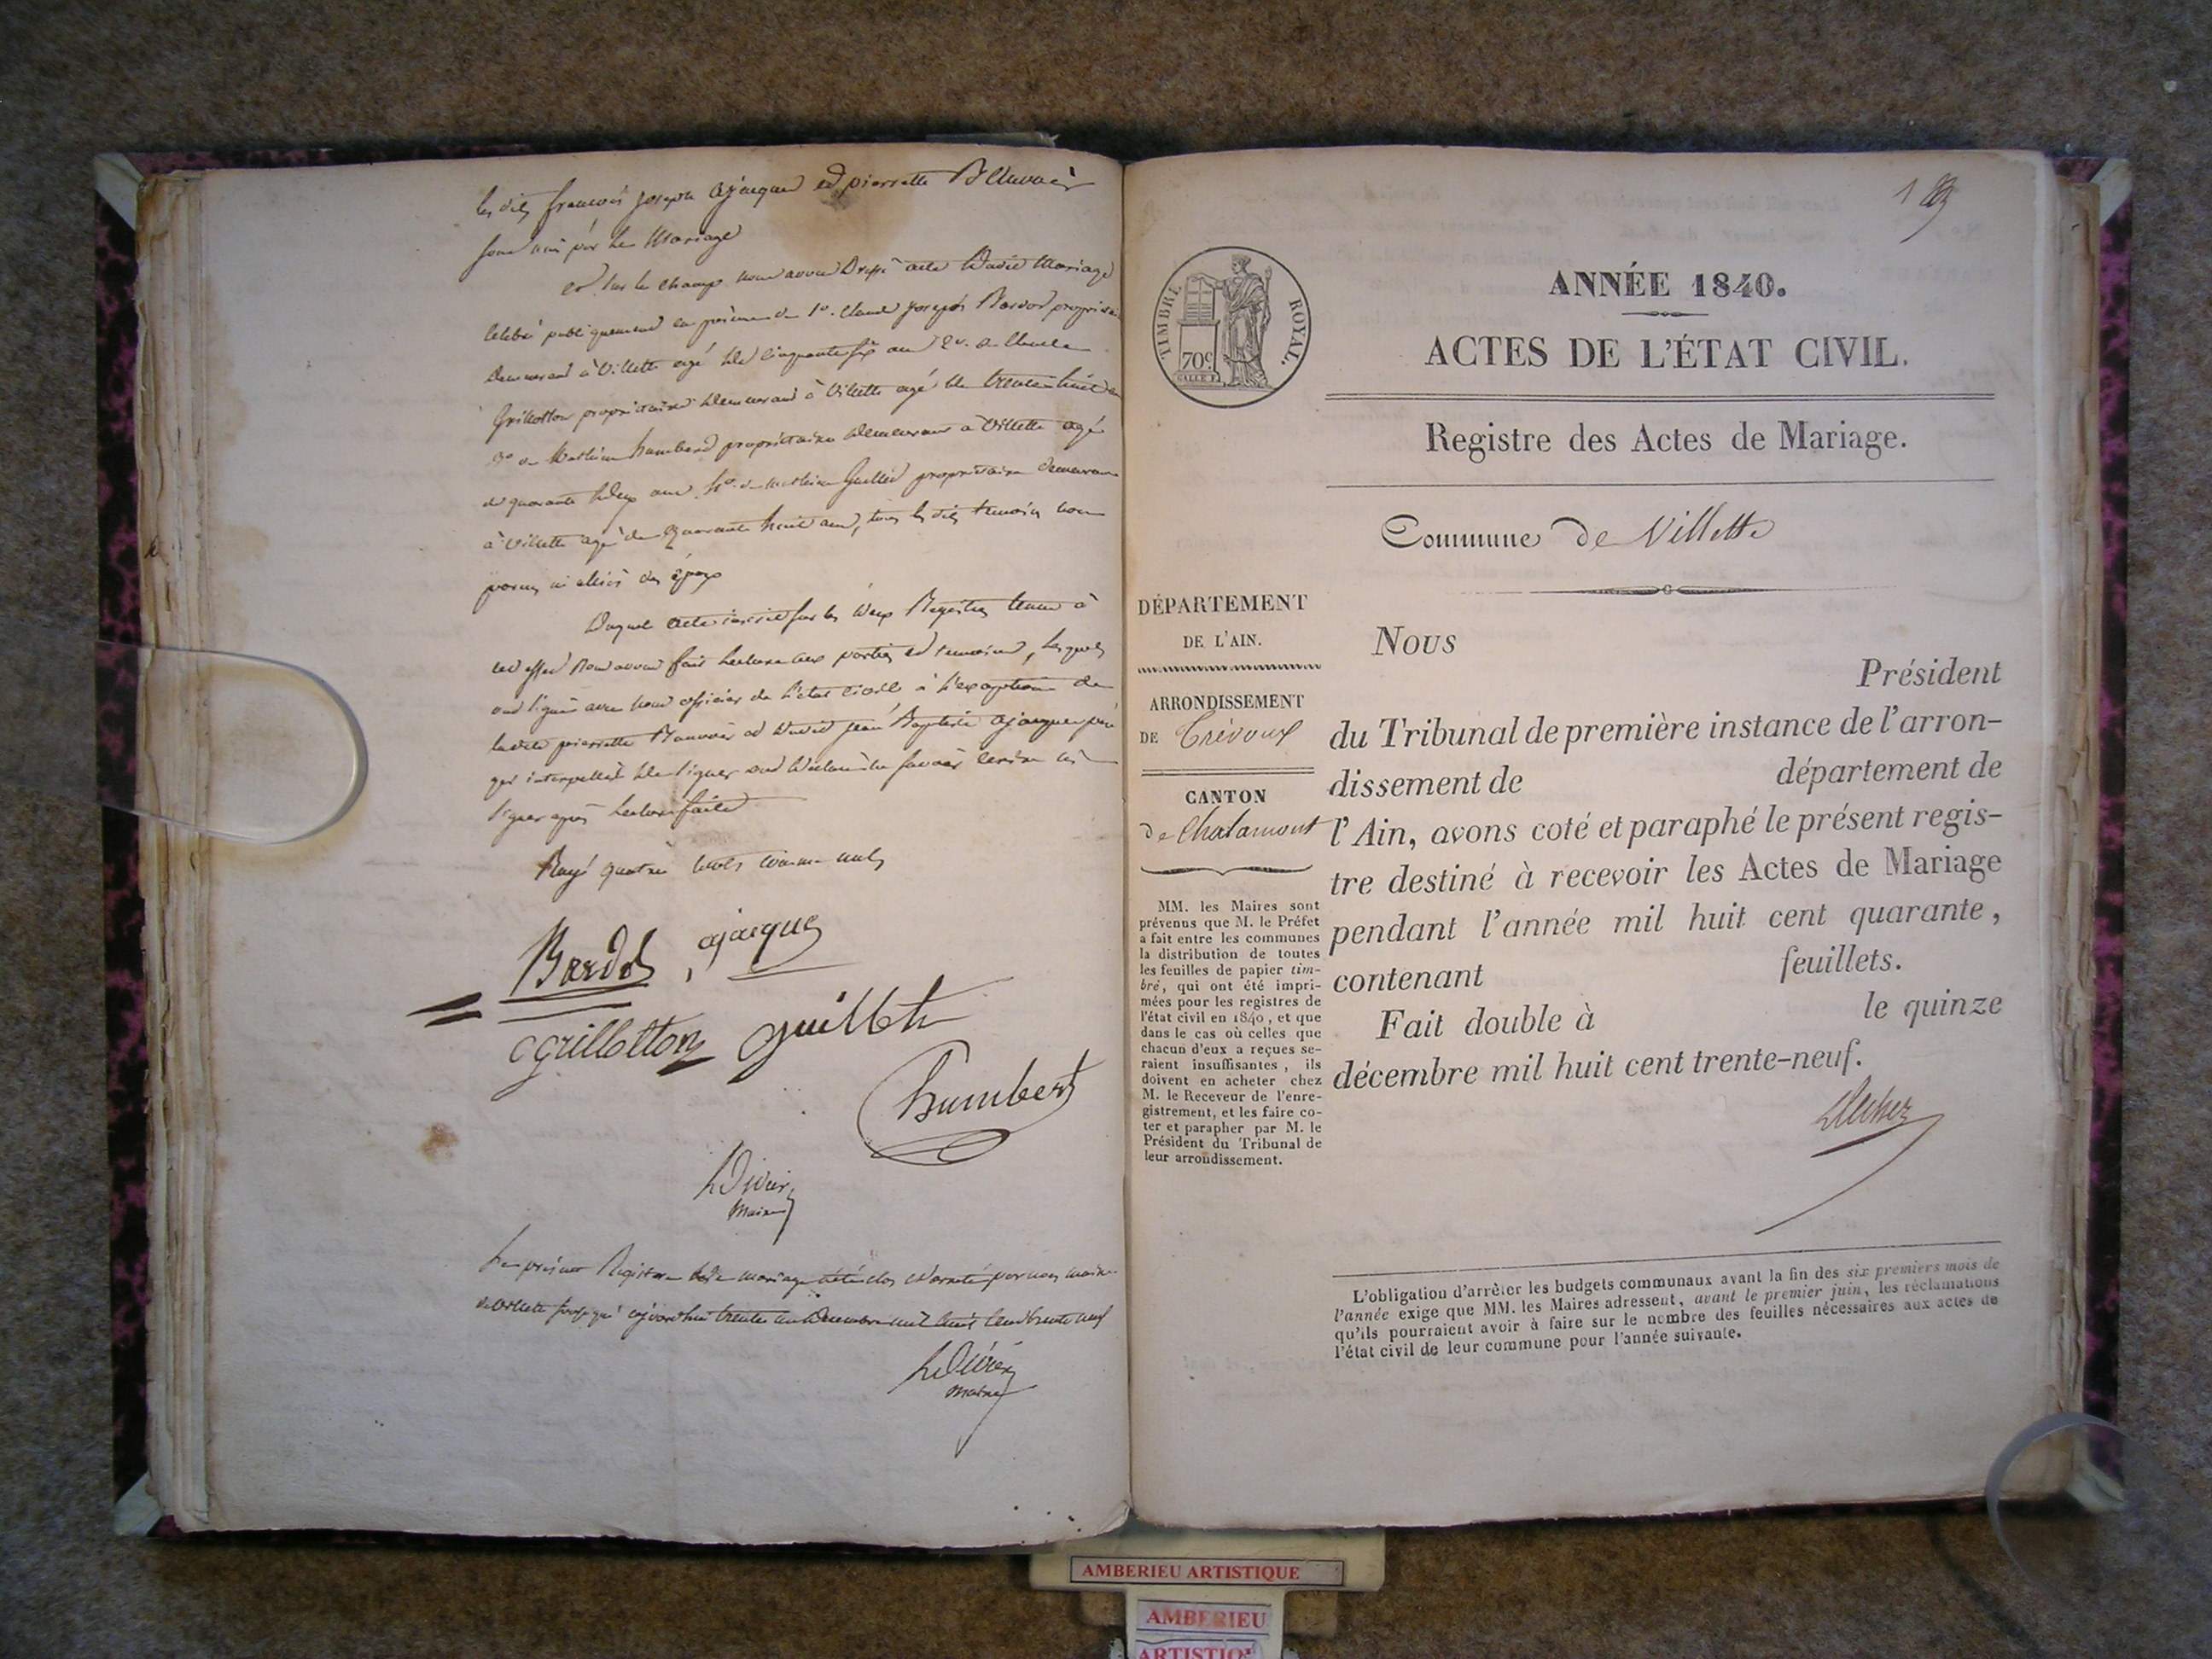 les dits francois joseph ajacque et pierrette
sont unis par le Mariage
et sur le champ nous avons Dressé acte Dudit Mariage
célébré publiquement en présence de 1º. Claude joseph Bardod propriétaire
demeurant à Villette agé de cinquante six ans 2º. de Claude
Grillotton propriétaire demeurant à Villette agé de trente huit ans
3º de Mathieu humbert propriétaire demeurant à Villette agé
de quarante deux ans 4º. de mathieu Guillet propriétaire demeurant
à Villette agé de quarante huit ans, tous les dits témoins non
parens ni alliés des époux
Duquel acte inscrit sur les deux Registres tenus à
cet effet nous avons fait lecture aux parties et temoins, lesquels
ont signé avec nous officier de l'état civil à l'exception de
ladite pierrette et dudit jean Baptiste ajacque père
qui interpellés de signer ont déclaré ne savoir écrire ni
signer après lecture faite
Rayé quatre mots comme nuls
Bardod, ajacque
cgrillotton guillet
humbert
Maire
Le présent Registre de mariage a été clos et arrêté par nous maire
de Villette soussigné aujourd'hui trente un Décembre mil huit cent trente neuf
maire
TIMBRE ROYAL.
70c.
ANNÉE 1840.
ACTES DE L'ÉTAT CIVIL.
Registre des Actes de Mariage.
Commune de Villette
DÉPARTEMENT
DE L'AIN.
ARRONDISSEMENT
DE Trévoux
CANTON
de Chalamont
MM. les Maires sont
prévenus que M. le Préfet
a fait entre les communes
la distribution de toutes
les feuilles de papier tim-
bré, qui ont été impri-
mées pour les registres de
l'état civil en 1840, et que
dans le cas où celles que
chacun d'eux a reçues se-
raient insuffisantes, ils
doivent en acheter chez
M. le Receveur de l'enre-
gistrement, et les faire co-
ter et parapher par M. le
Président du Tribunal de
leur arrondissement.
Nous
Président
du Tribunal de première instance de l'arron-
dissement de département de
l'Ain, avons coté et paraphé le présent regis-
tre destiné à recevoir les Actes de Mariage
pendant l'année mil huit cent quarante,
contenant feuillets.
Fait double à le quinze
décembre mil huit cent trente-neuf.
L'obligation d'arrêter les budgets communaux avant la fin des six premiers mois de
l'année exige que MM. les Maires adressent, avant le premier juin, les réclamations
qu'ils pourraient avoir à faire sur le nombre des feuilles nécessaires aux actes de
l'état civil de leur commune pour l'année suivante.
AMBERIEU ARTISTIQUE
AMBERIEU
ARTISTIQUE